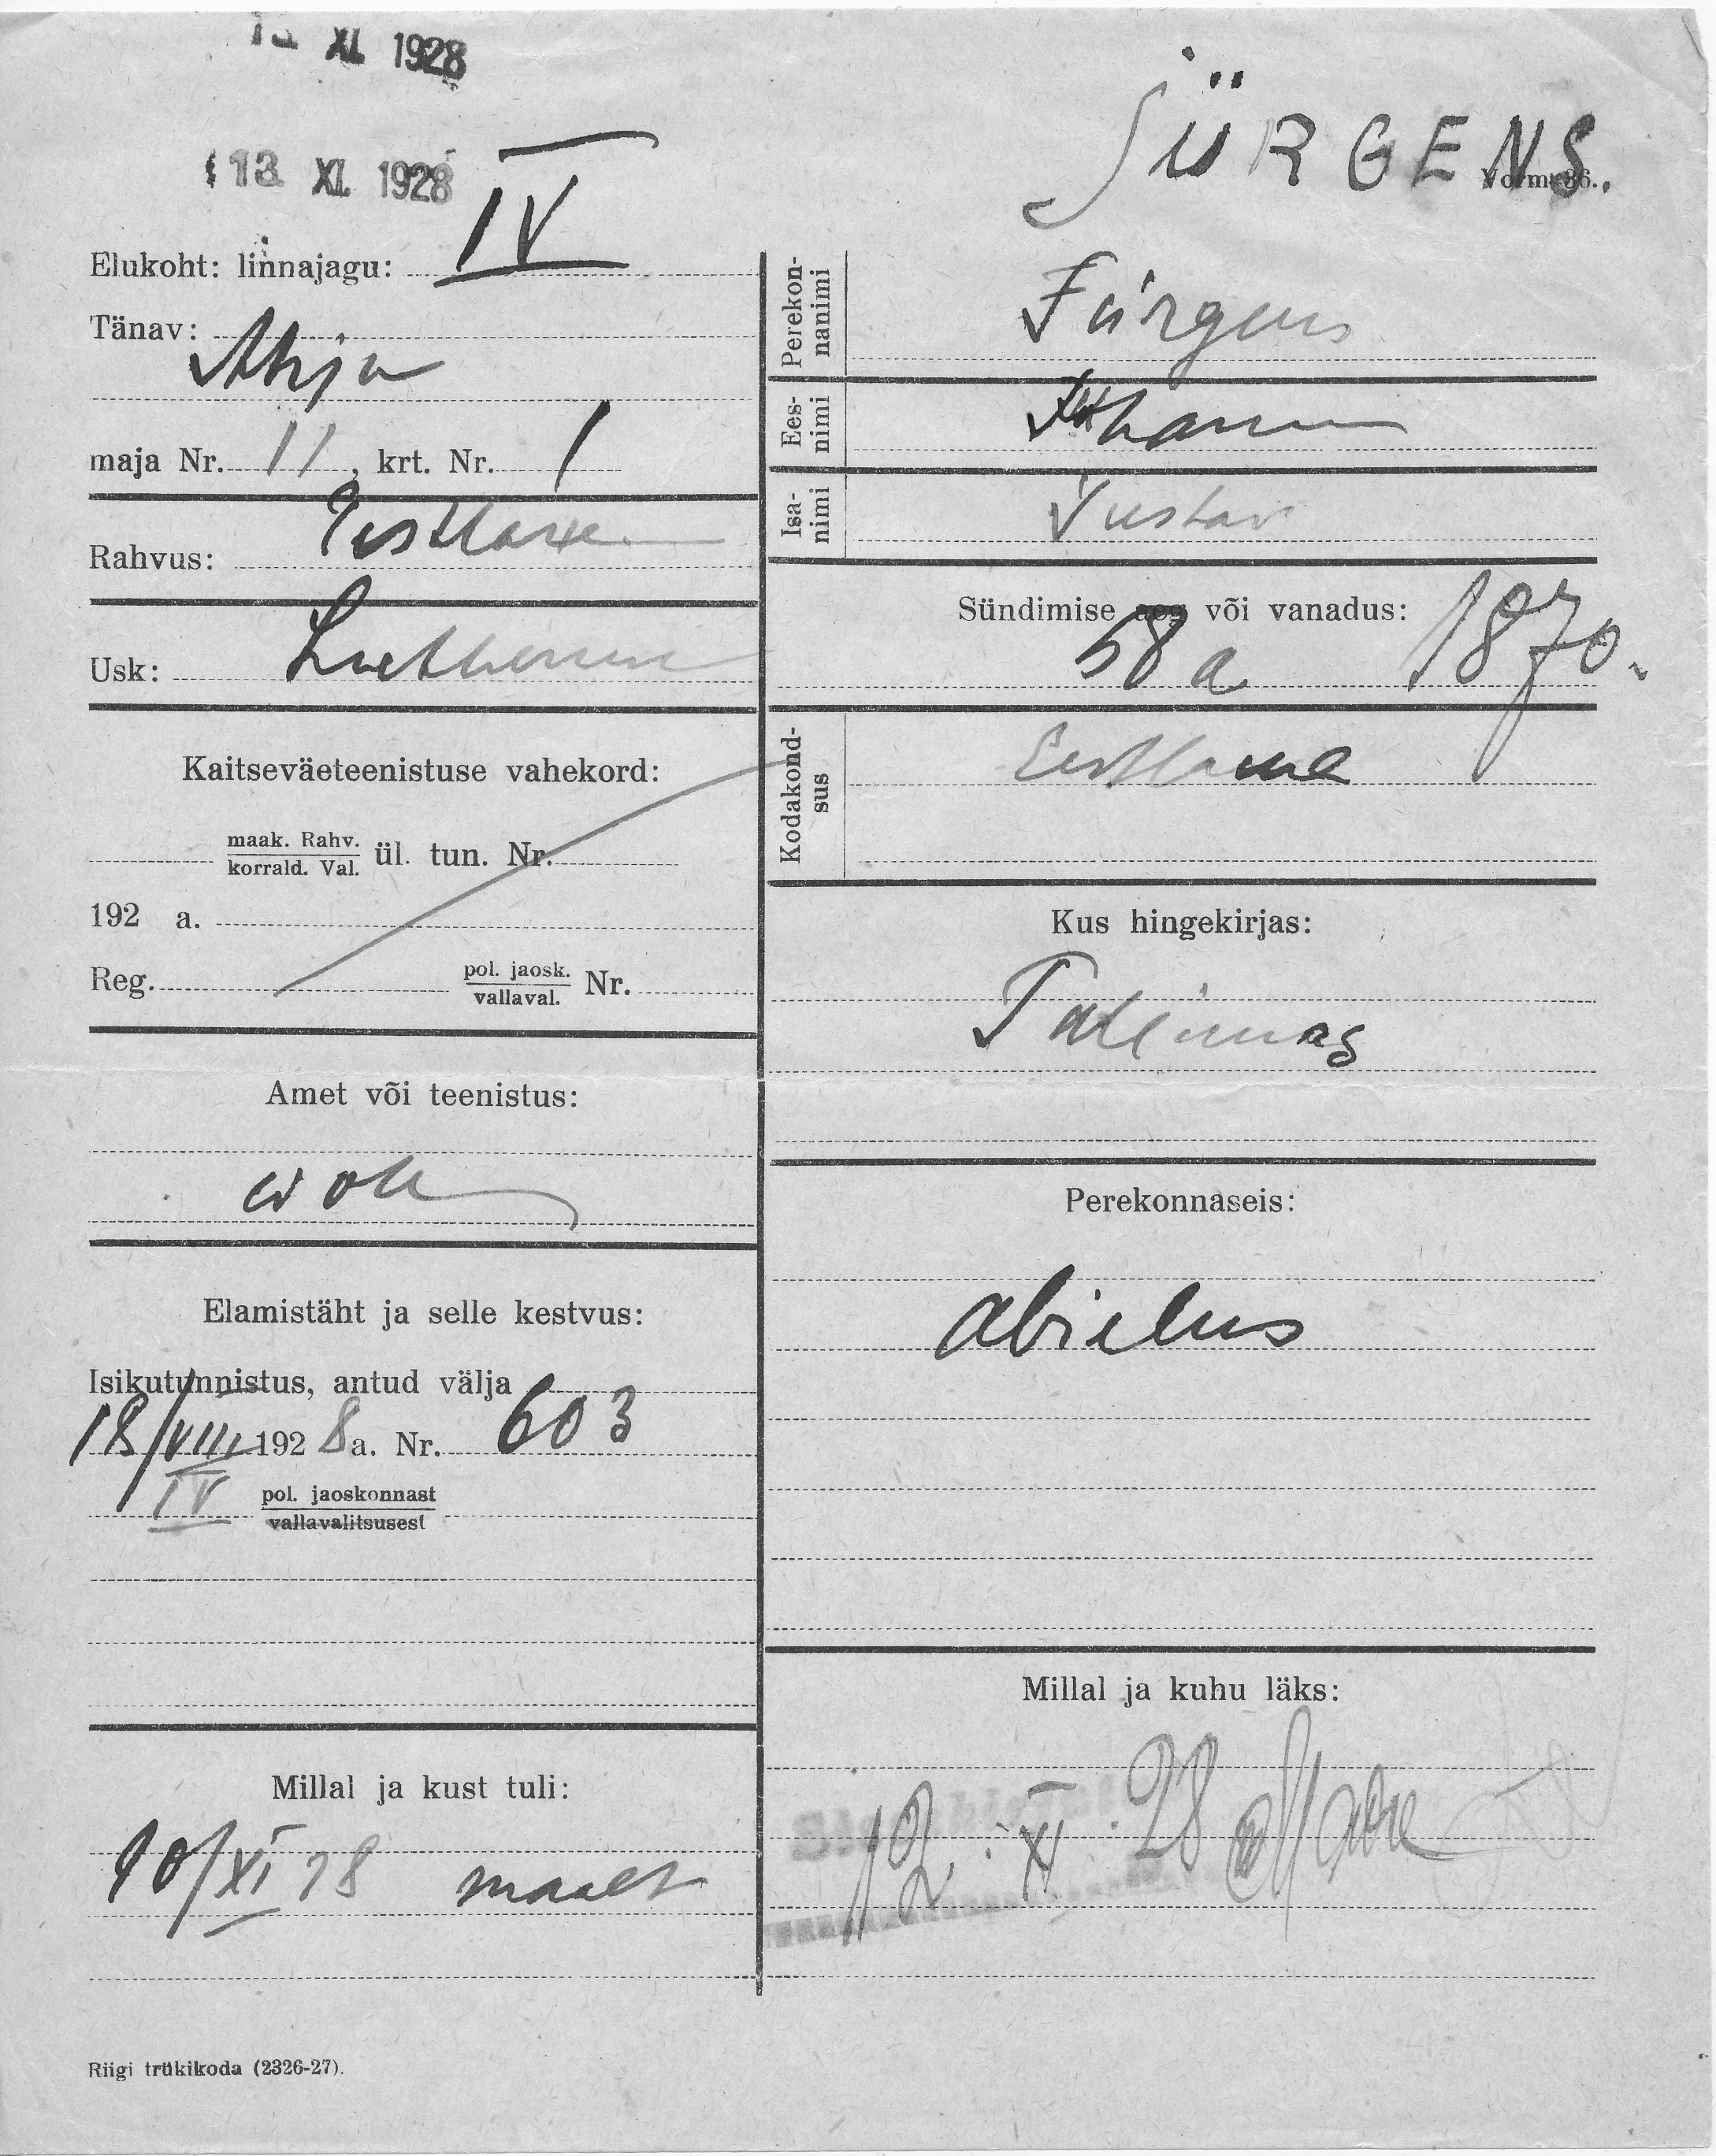 XI 1928
13 XI 1928
JÜRGENS.
Vorm 36.
IV
Elukoht: linnajagu:
Tänav:
Ahja
maja Nr. 11, krt. Nr. 1
Rahvus: Eestlane
Usk: Lutherus
Kaitseväeteenistuse vahekord:
maak. Rahv.
korrald. Val.
ül. tun. Nr.
192 a.
Reg. pol. jaosk.
vallaval.
Nr.
Amet või teenistus:
Elamistäht ja selle kestvus:
Isikutunnistus, antud välja
18/VIII 1928 a. Nr. 603
IV pol. jaoskonnast
vallavalitsusest
Millal ja kust tuli:
10/XI 28 maalt
Riigi trükikoda (2326-27).
Perekon-
nanimi
Jürgens
Ees-
nimi
Juhan
Isa-
nimi
Gustav
Sündimise aeg või vanadus:
58 a 1870.
Kodakond-
sus
Eestlane
Kus hingekirjas:
Tallinnas
Perekonnaseis:
abielus
Millal ja kuhu läks:
12. XI. 28 Maale